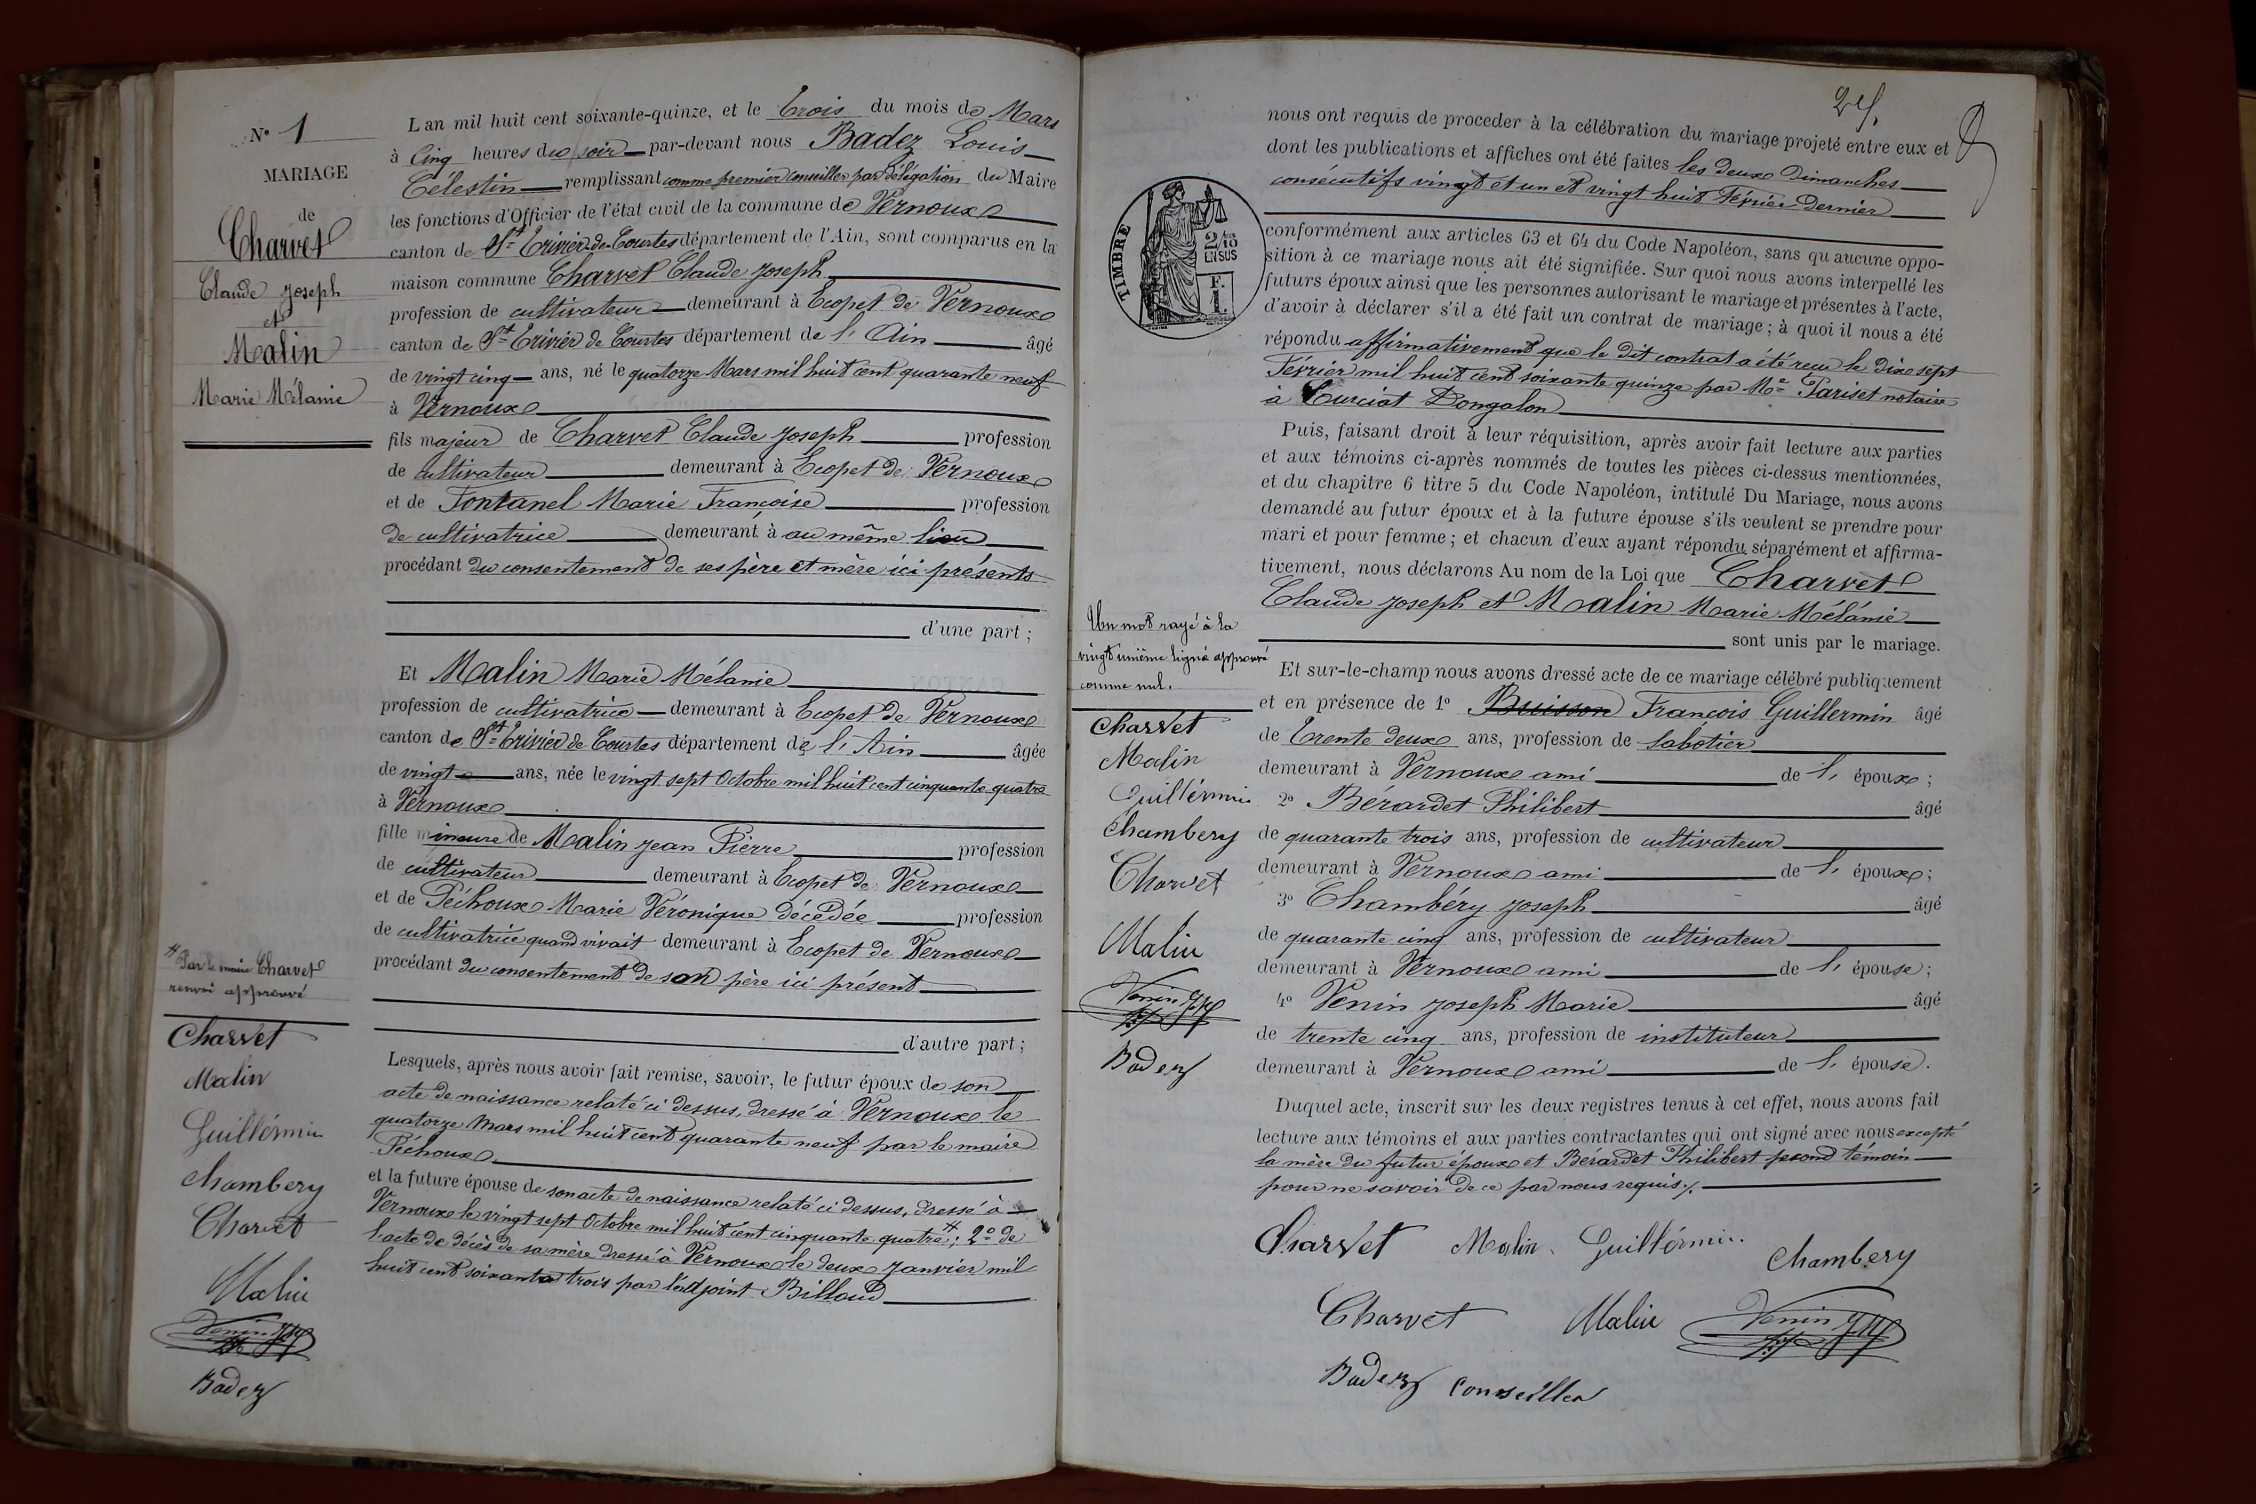 N° 1
MARIAGE
de
Charvet
Claude Joseph
et
Malin
Marie Mélanie
L'an mil huit cent soixante-quinze, et le trois du mois de Mars
à cinq heures du soir par-devant nous Badez Louis
Célestin remplissant comme premier conseiller par délégation du Maire
les fonctions d'Officier de l'état civil de la commune de Vernoux
canton de St Trivier de Courtes département de l'Ain, sont comparus en la
maison commune Charvet Claude Joseph
profession de cultivateur demeurant à Ecopet de Vernoux
canton de St Trivier de Courtes département de l'Ain âgé
de vingt cinq ans, né le quatorze Mars mil huit cent quarante neuf
à Vernoux
fils majeur de Charvet Claude Joseph profession
de cultivateur demeurant à Ecopet de Vernoux
et de Fontanel Marie Françoise profession
de cultivatrice demeurant à au même lieu
procédant du consentement de ses père et mère ici présents
d'une part ;
Et Malin Marie Mélanie
profession de cultivatrice demeurant à Ecopet de Vernoux
canton de St Trivier de Courtes département de l'Ain âgée
de vingt ans, née le vingt sept Octobre mil huit cent cinquante quatre
à Vernoux
fille mineure de Malin Jean Pierre profession
de cultivateur demeurant à Ecopet de Vernoux
et de Péchoux Marie Véronique décédée profession
de cultivatrice quand vivait demeurant à Ecopet de Vernoux
procédant du consentement de son père ici présent
d'autre part ;
Lesquels, après nous avoir fait remise, savoir, le futur époux de son
acte de naissance relaté ci dessus, dressé à Vernoux le
quatorze Mars mil huit cent quarante neuf par le maire
Péchoux
et la future épouse de son acte de naissance relaté ci dessus, dressé à
Vernoux le vingt sept Octobre mil huit cent cinquante quatre # ; 2° de
l'acte de décès de sa mère dressé à Vernoux le deux Janvier mil
huit cent soixante trois par l'adjoint Billoud
# Par le maire Charvet
renvoi approuvé
Charvet
Malin
Guillérmin
Chambery
Charvet
Malin
Venin J M
Badez
25.
nous ont requis de proceder à la célébration du mariage projeté entre eux et
dont les publications et affiches ont été faites les deux Dimanches
consécutifs vingt et un et vingt huit Février dernier
TIMBRE
2/10
EN SUS
F.
1.
conformément aux articles 63 et 64 du Code Napoléon, sans qu'aucune oppo-
sition à ce mariage nous ait été signifiée. Sur quoi nous avons interpellé les
futurs époux ainsi que les personnes autorisant le mariage et présentes à l'acte,
d'avoir à déclarer s'il a été fait un contrat de mariage ; à quoi il nous a été
répondu affirmativement que le dit contrat a été reçu le dix sept
Février mil huit cent soixante quinze par Me Pariset notaire
à Curciat Dongalon
Puis, faisant droit à leur réquisition, après avoir fait lecture aux parties
et aux témoins ci-après nommés de toutes les pièces ci-dessus mentionnées,
et du chapitre 6 titre 5 du Code Napoléon, intitulé Du Mariage, nous avons
demandé au futur époux et à la future épouse s'ils veulent se prendre pour
mari et pour femme ; et chacun d'eux ayant répondu séparément et affirma-
tivement, nous déclarons Au nom de la Loi que Charvet
Claude Joseph et Malin Marie Mélanie
sont unis par le mariage.
Et sur-le-champ nous avons dressé acte de ce mariage célébré publiquement
et en présence de 1° Buisson François Guillermin âgé
de trente deux ans, profession de sabotier
demeurant à Vernoux ami de l'époux ;
2° Bérardet Philibert âgé
de quarante trois ans, profession de cultivateur
demeurant à Vernoux ami de l'époux ;
3° Chambéry Joseph âgé
de quarante cinq ans, profession de cultivateur
demeurant à Vernoux ami de l'épouse ;
4° Venin Joseph Marie âgé
de trente cinq ans, profession de instituteur
demeurant à Vernoux ami de l'épouse.
Duquel acte, inscrit sur les deux registres tenus à cet effet, nous avons fait
lecture aux témoins et aux parties contractantes qui ont signé avec nous excepté
la mère du futur époux et Bérardet Philibert second témoin
pour ne savoir de ce par nous requis ./.
Charvet Malin Guillérmin Chambery
Charvet Malin Venin J M
Badez conseiller
Un mot rayé à la
vingt unième ligne approuvé
comme nul.
Charvet
Malin
Guillérmin
Chambery
Charvet
Malin
Venin J M
Badez